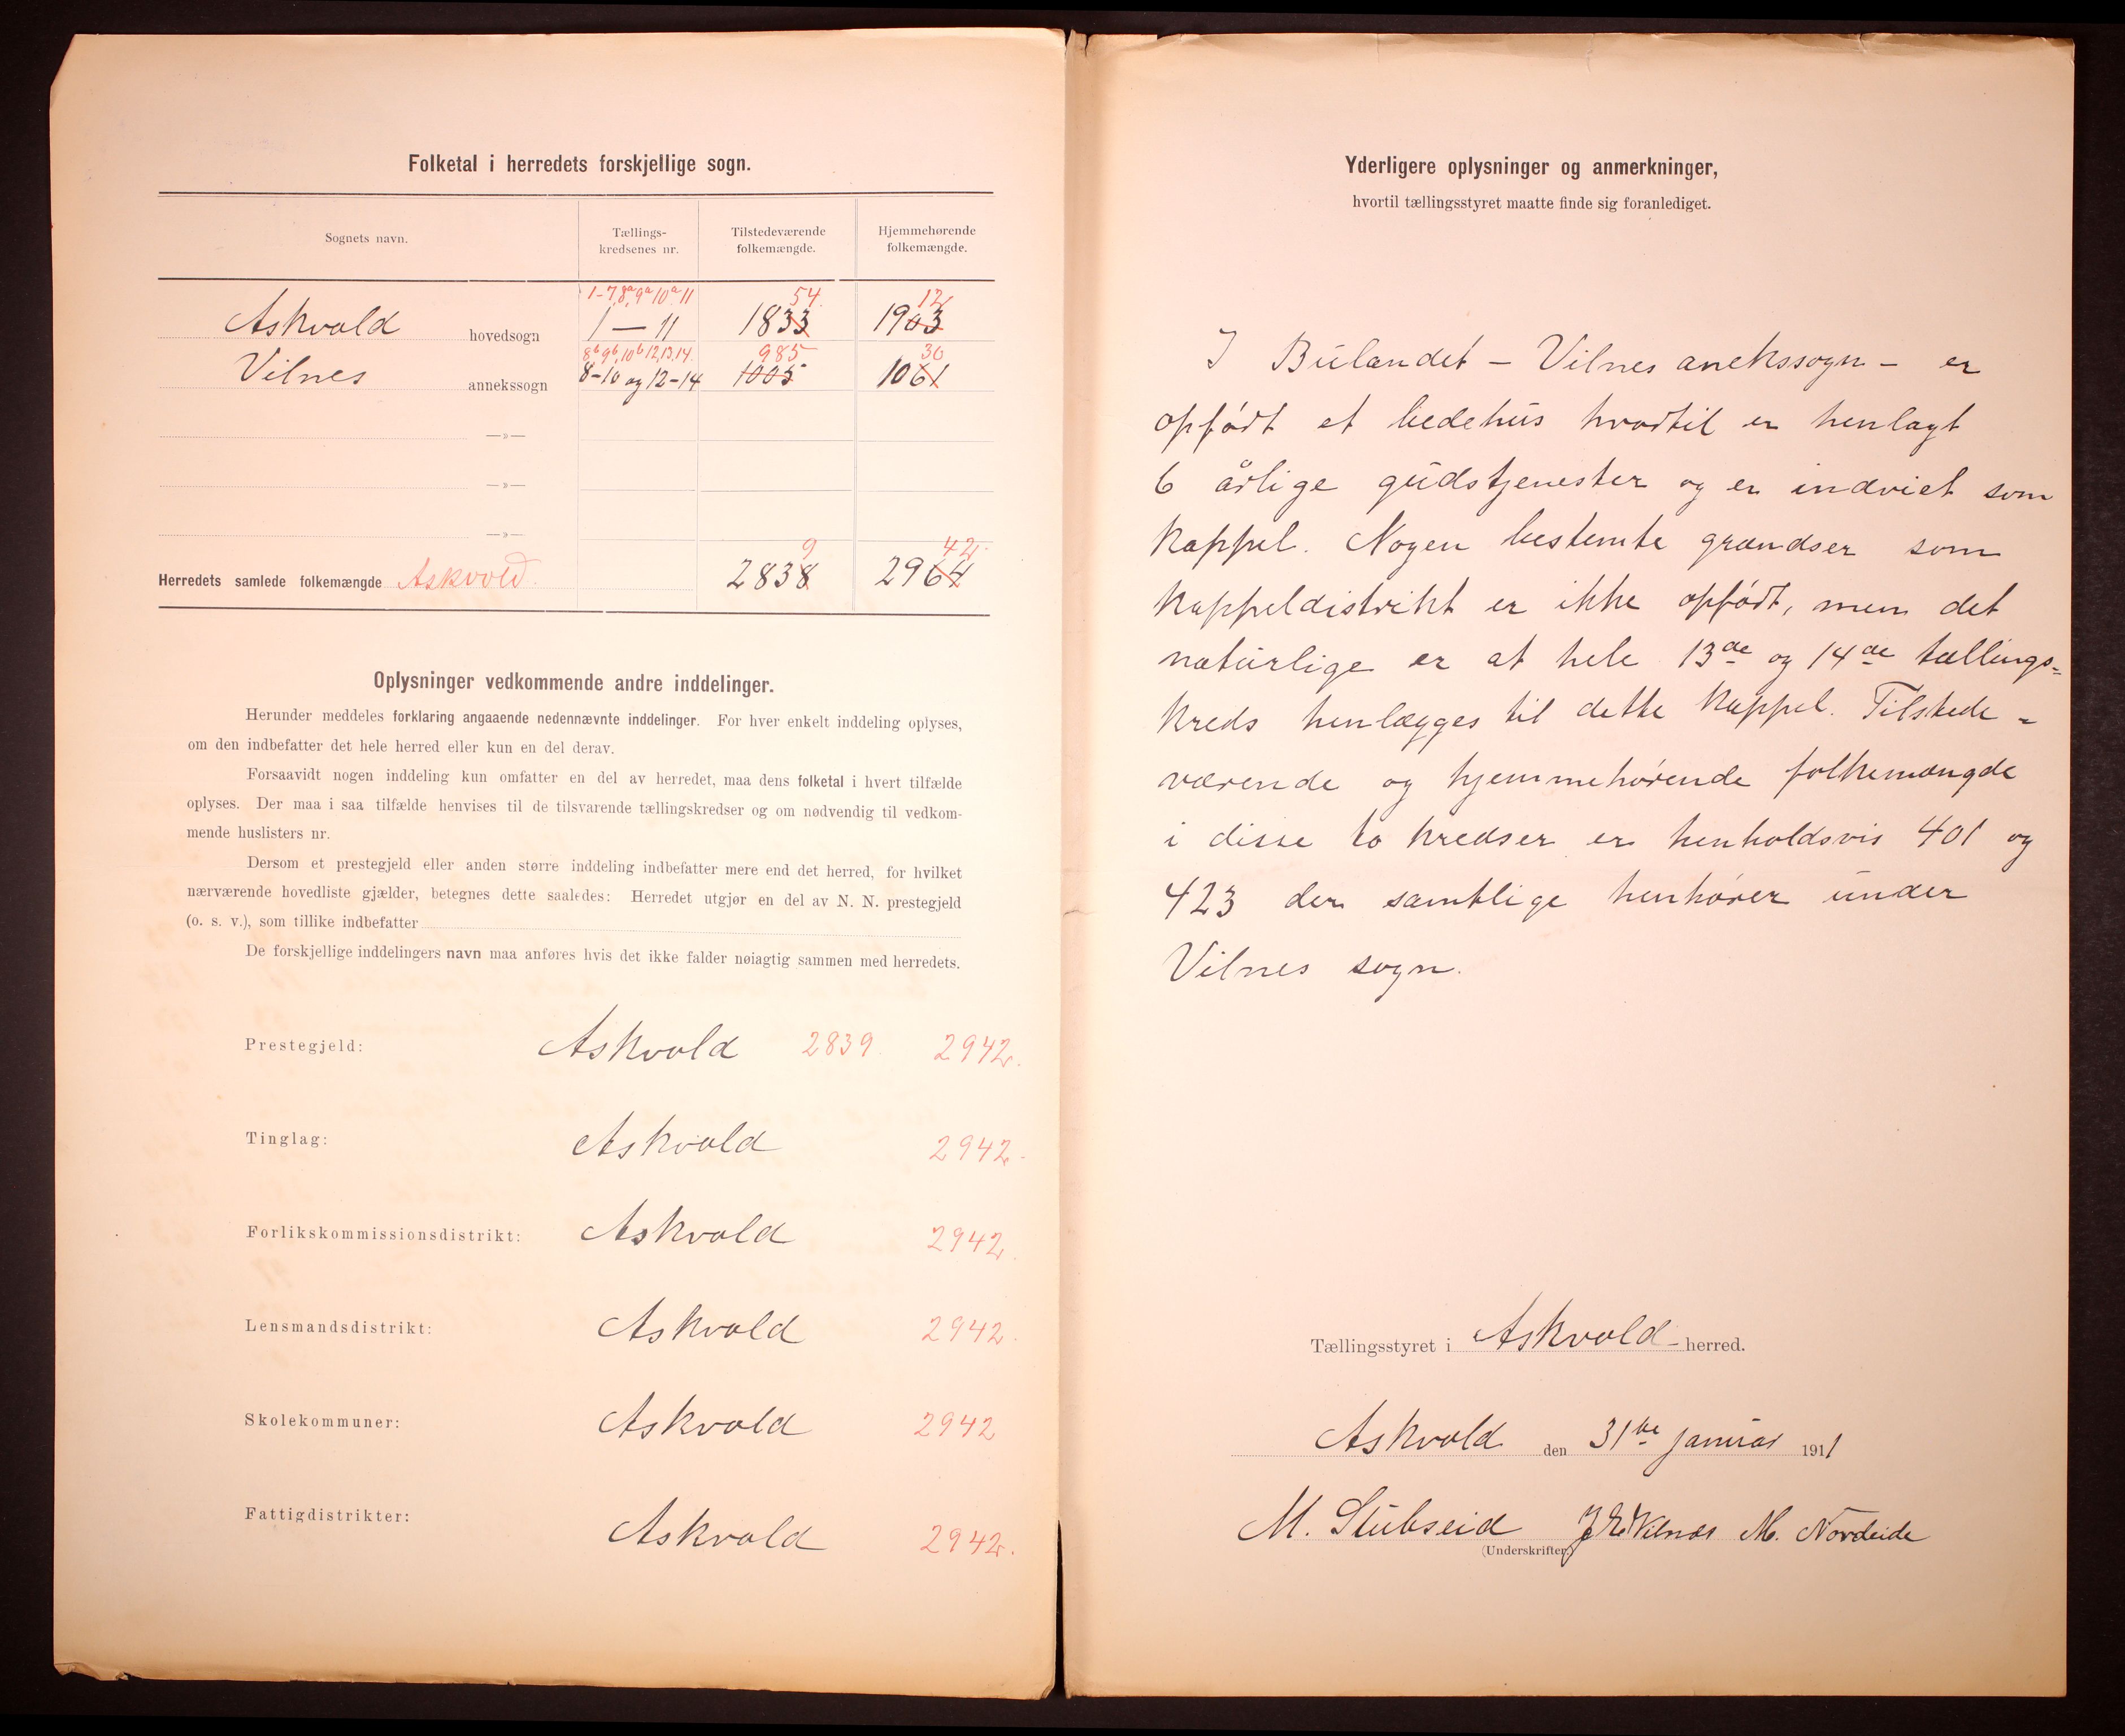 Folketal i herredets forskjellige sogn.
Sognets navn.
Tællings-
kredsenes nr.
Tilstedeværende
folkemængde.
Hjemmehørende
folkemængde.
1-7, 8a, 9a 10a 11 54. 12
Askvold hovedsogn 1 — 11 1833 1903
8b 9b, 10b 12,13,14. 985 30
Vilnes annekssogn 8-10 og 12-14 1005 1061
—»—
—»—
—»—
9 42.
Herredets samlede folkemængde Askvold. 2838 2964
Oplysninger vedkommende andre inddelinger.
Herunder meddeles forklaring angaaende nedennævnte inddelinger. For hver enkelt inddeling oplyses,
om den indbefatter det hele herred eller kun en del derav.
Forsaavidt nogen inddeling kun omfatter en del av herredet, maa dens folketal i hvert tilfælde
oplyses. Der maa i saa tilfælde henvises til de tilsvarende tællingskredser og om nødvendig til vedkom-
mende huslisters nr.
Dersom et prestegjeld eller anden større inddeling indbefatter mere end det herred, for hvilket
nærværende hovedliste gjælder, betegnes dette saaledes: Herredet utgjør en del av N. N. prestegjeld
(o. s. v.), som tillike indbefatter
De forskjellige inddelingers navn maa anføres hvis det ikke falder nøiagtig sammen med herredets.
Prestegjeld: Askvold 2839. 2942.
Tinglag: Askvold 2942.
Forlikskommissionsdistrikt: Askvold 2942.
Lensmandsdistrikt: Askvold 2942.
Skolekommuner: Askvold 2942
Fattigdistrikter: Askvold 2942.
Yderligere oplysninger og anmerkninger,
hvortil tællingsstyret maatte finde sig foranlediget.
I Bulandet – Vilnes anekssogn – er
opført et bedehus hvortil er henlagt
6 årlige gudstjenester og er indviet som
kappel. Nogen bestemte grændser som
kappeldistrikt er ikke opført, men det
naturlige er at hele 13de og 14de tællings=
kreds henlægges til dette kappel. Tilstede=
værende og hjemmehørende folkemængde
i disse to kredser er henholdsvis 401 og
423 der samtlige henhører under
Vilnes sogn.
Tællingsstyret i Askvold herred.
Askvold den 31te januar 1911
M. Stubseid Vilnes M. Nordeide
(Underskrifter.)